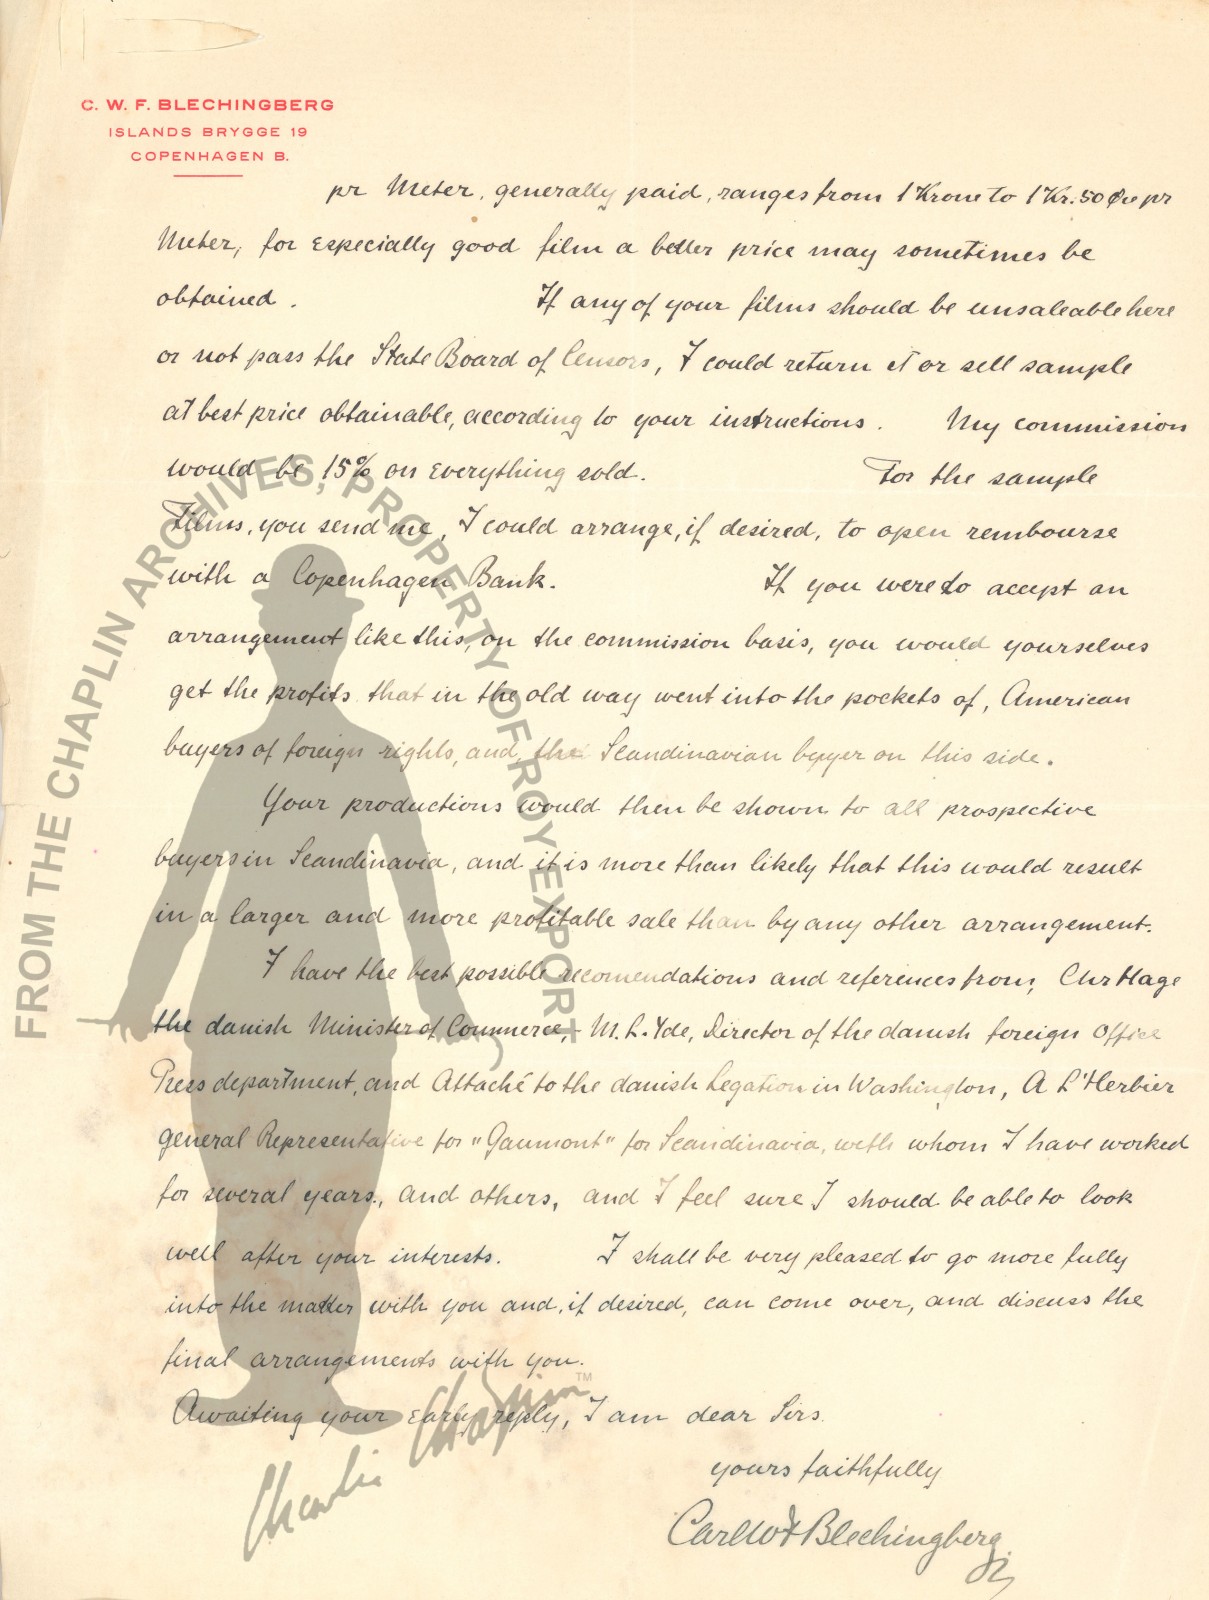 C. W. F. BLECHINGBERG
ISLANDS BRYGGE 19
COPENHAGEN B.
pr Meter, generally paid, ranges from 1 Krone to 1 Kr. 50 Øre pr
Meter, for especially good film a better price may sometimes be
obtained. If any of your films should be unsaleable here
or not pass the State Board of Censors, I could return it or sell sample
at best price obtainable, according to your instructions. My commission
would be 15% on everything sold. For the sample
Films, you send me, I could arrange, if desired, to open rembourse
with a Copenhagen Bank. If you were to accept an
arrangement like this, on the commission basis, you would yourselves
get the profits that in the old way went into the pockets of, American
buyers of foreign rights, and the Scandinavian buyer on this side.
Your productions would then be shown to all prospective
buyers in Scandinavia, and it is more than likely that this would result
in a larger and more profitable sale than by any other arrangement.
I have the best possible recomendations and references from, Chr Hage
the danish Minister of Commerce, - M. L. Yde, Director of the danish foreign Office
Press department, and Attaché to the danish Legation in Washington, A L'Herbier
general Representative for "Gaumont" for Scandinavia, with whom I have worked
for several years, and others, and I feel sure I should be able to look
well after your interests. I shall be very pleased to go more fully
into the matter with you and, if desired, can come over, and discuss the
final arrangements with you.
Awaiting your early reply, I am dear Sirs.
yours faithfully
Carl W F Blechingberg
FROM THE CHAPLIN ARCHIVES, PROPERTY OF ROY EXPORT
Charlie Chaplin™